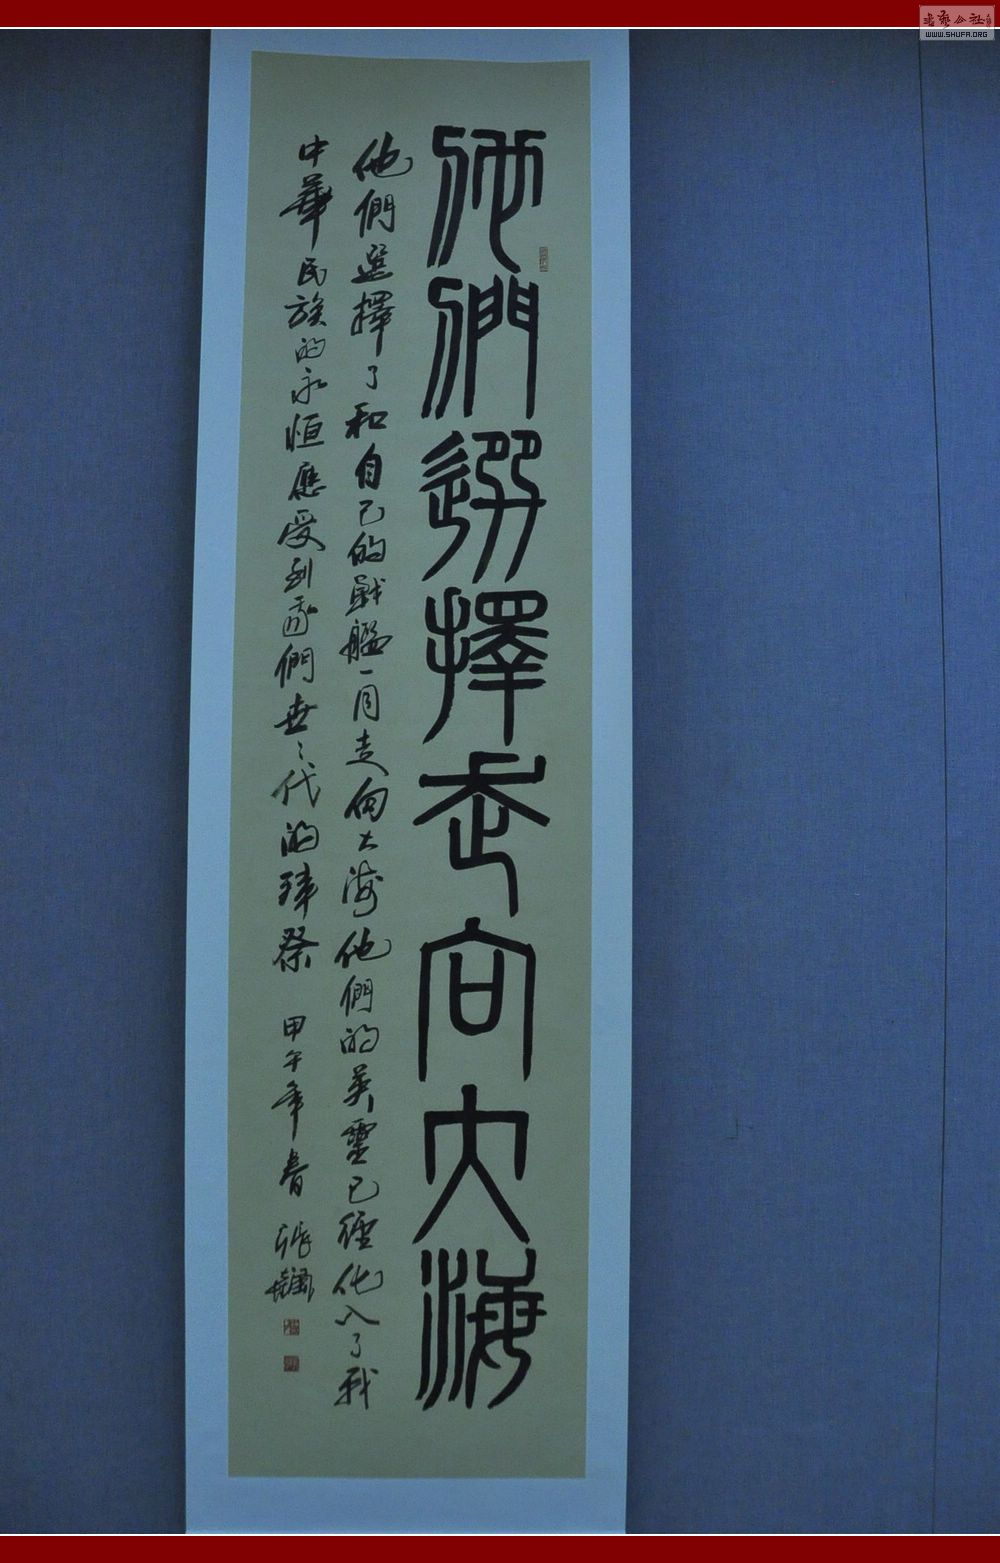 他們選擇走向大海
他們選擇了和自己的戰艦一同走向大海他們的英靈已經化入了我
中華民族的永恒應受到我們世世代代的拜祭 甲午年春 張
书艺公社
WWW.SHUFA.ORG